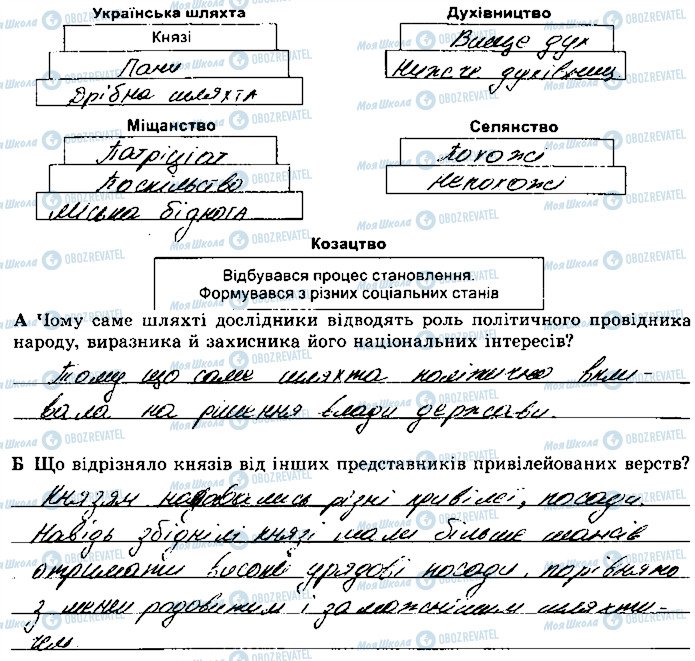 Українська шляхта
Князі
Пани
Дрібна шляхта
Духівництво
Вище дух
Нижче духівниц.
Міщанство
Патриціат
Поспільство
Міська біднота
Селянство
Похожі
Непохожі
Козацтво
Відбувався процес становлення.
Формувався з різних соціальних станів
А Чому саме шляхті дослідники відводять роль політичного провідника
народу, виразника й захисника його національних інтересів?
Тому що саме шляхта політично впли-
вала на рішення влади держави.
Б Що відрізняло князів від інших представників привілейованих верств?
Князям надавались різні привілеї, посади.
Навідь збіднілі князі мали більше шансів
отримати високі урядові посади, порівняно
з менш родовитим і заможнішим шляхти-
чем.